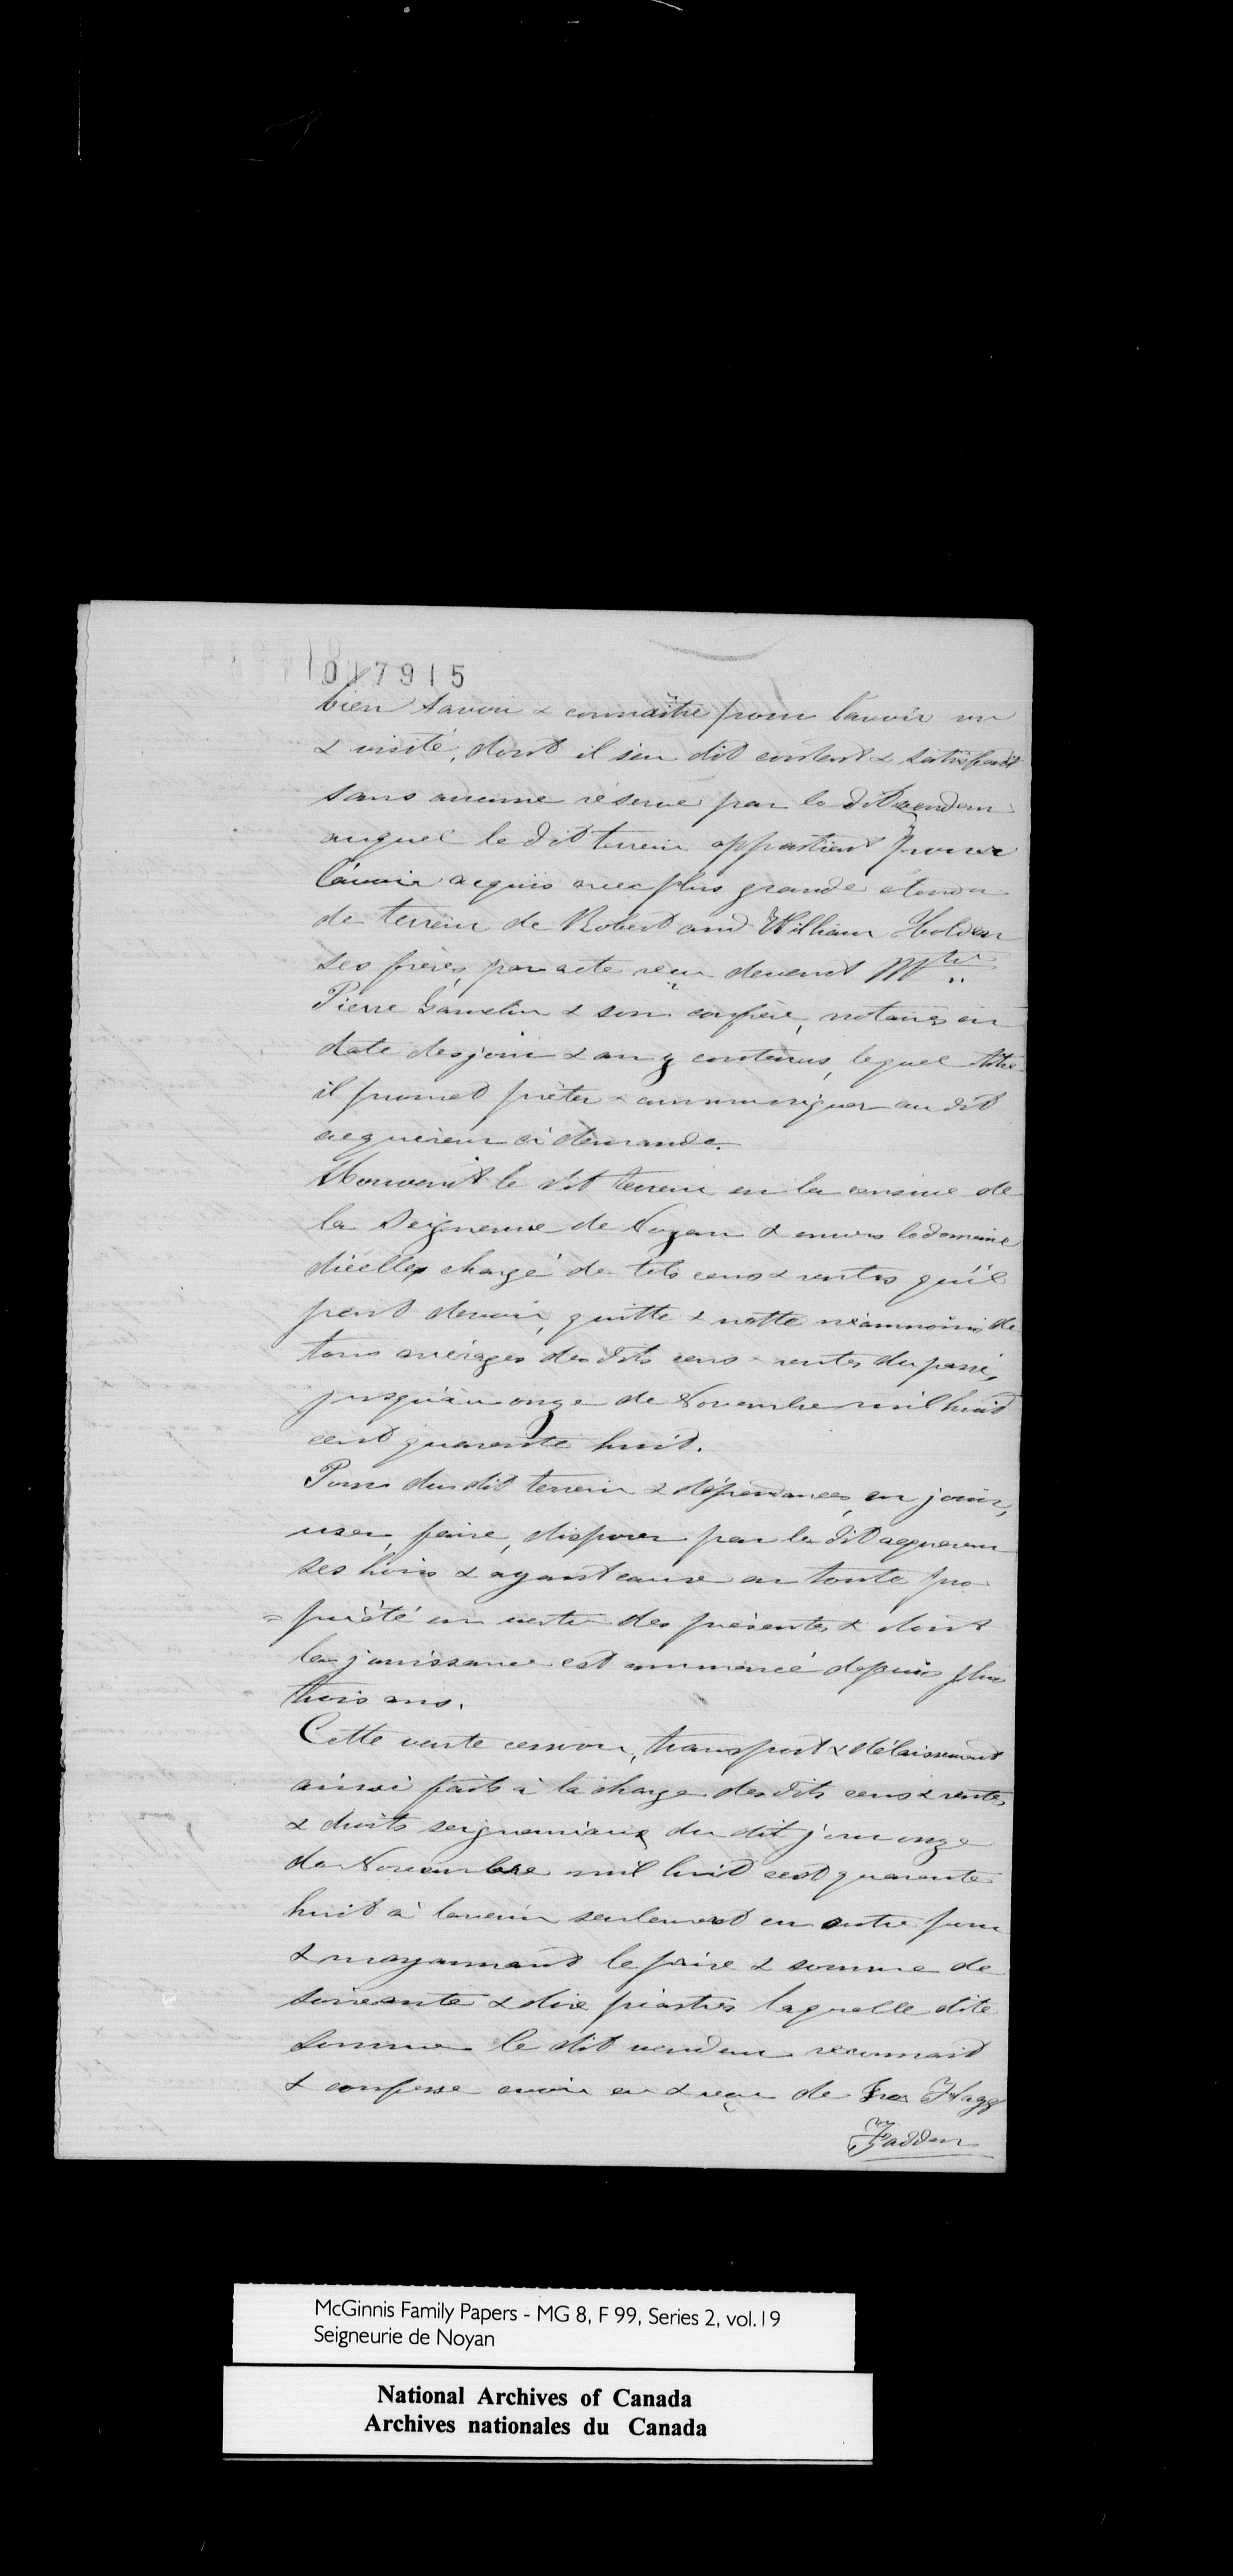 017915
bien savoir & connaître pour l'avoir vu
& visité, dont il s'en dit content & satisfait
sans aucune réserve par le dit vendeur
auquel le dit terrein appartient pour
l'avoir acquis avec plus grande étendu
de terrein de Robert and William Holden
ses frères, par acte reçu devant Mtre
Pierre Gamelin & son confrère, notaires en
date des jour & an y contenus, lequel titre
il promet prêter & communiquer au dit
acquéreur à demande.
Mouvant le dit terrein en la censive de
la Seigneurie de Noyan & envers le domaine
d'icelle chargé de tels cens & rentes qu'il
peut devoir, quitte & nette néanmoins de
tous arrérages des dits cens & rentes du passé,
jusqu'au onze de Novembre mil huit
cent quarante huit.
Pour du dit terrein & dépendances, en jouir,
user, faire, disposer par le dit acquereur
ses hoirs & ayant cause en toute pro
= priété en vertu des présentes & dont
la jouissance est commencé depuis plus
trois ans.
Cette vente cession, transport & délaissement
ainsi faits à la charge des dits cens & rentes
& droits seigneuriaux du dit jour onze
de Novembre mil huit cent quarante
huit à l'avenir seulement en outre pour
& moyennant le prix & somme de
soixante & dix piastres laquelle dite
somme le dit vendeur reconnait
& confesse avoir eu & reçu de Hagg
Fadden
McGinnis Family Papers - MG 8, F 99, Series 2, vol.19
Seigneurie de Noyan
National Archives of Canada
Archives nationales du Canada